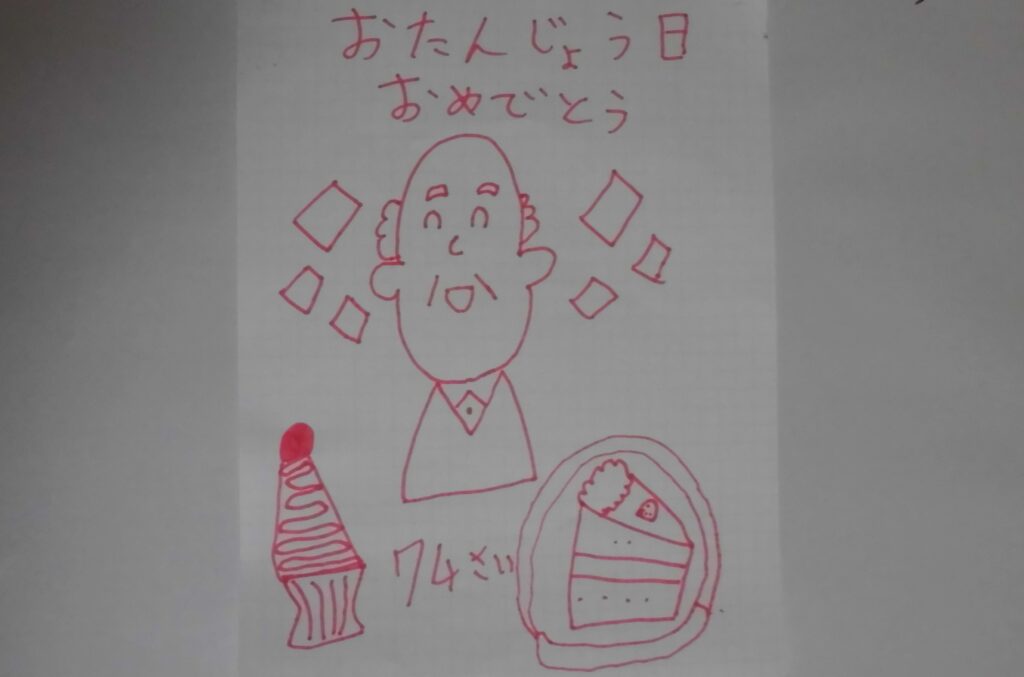 おたんじょう日
おめでとう
74さい